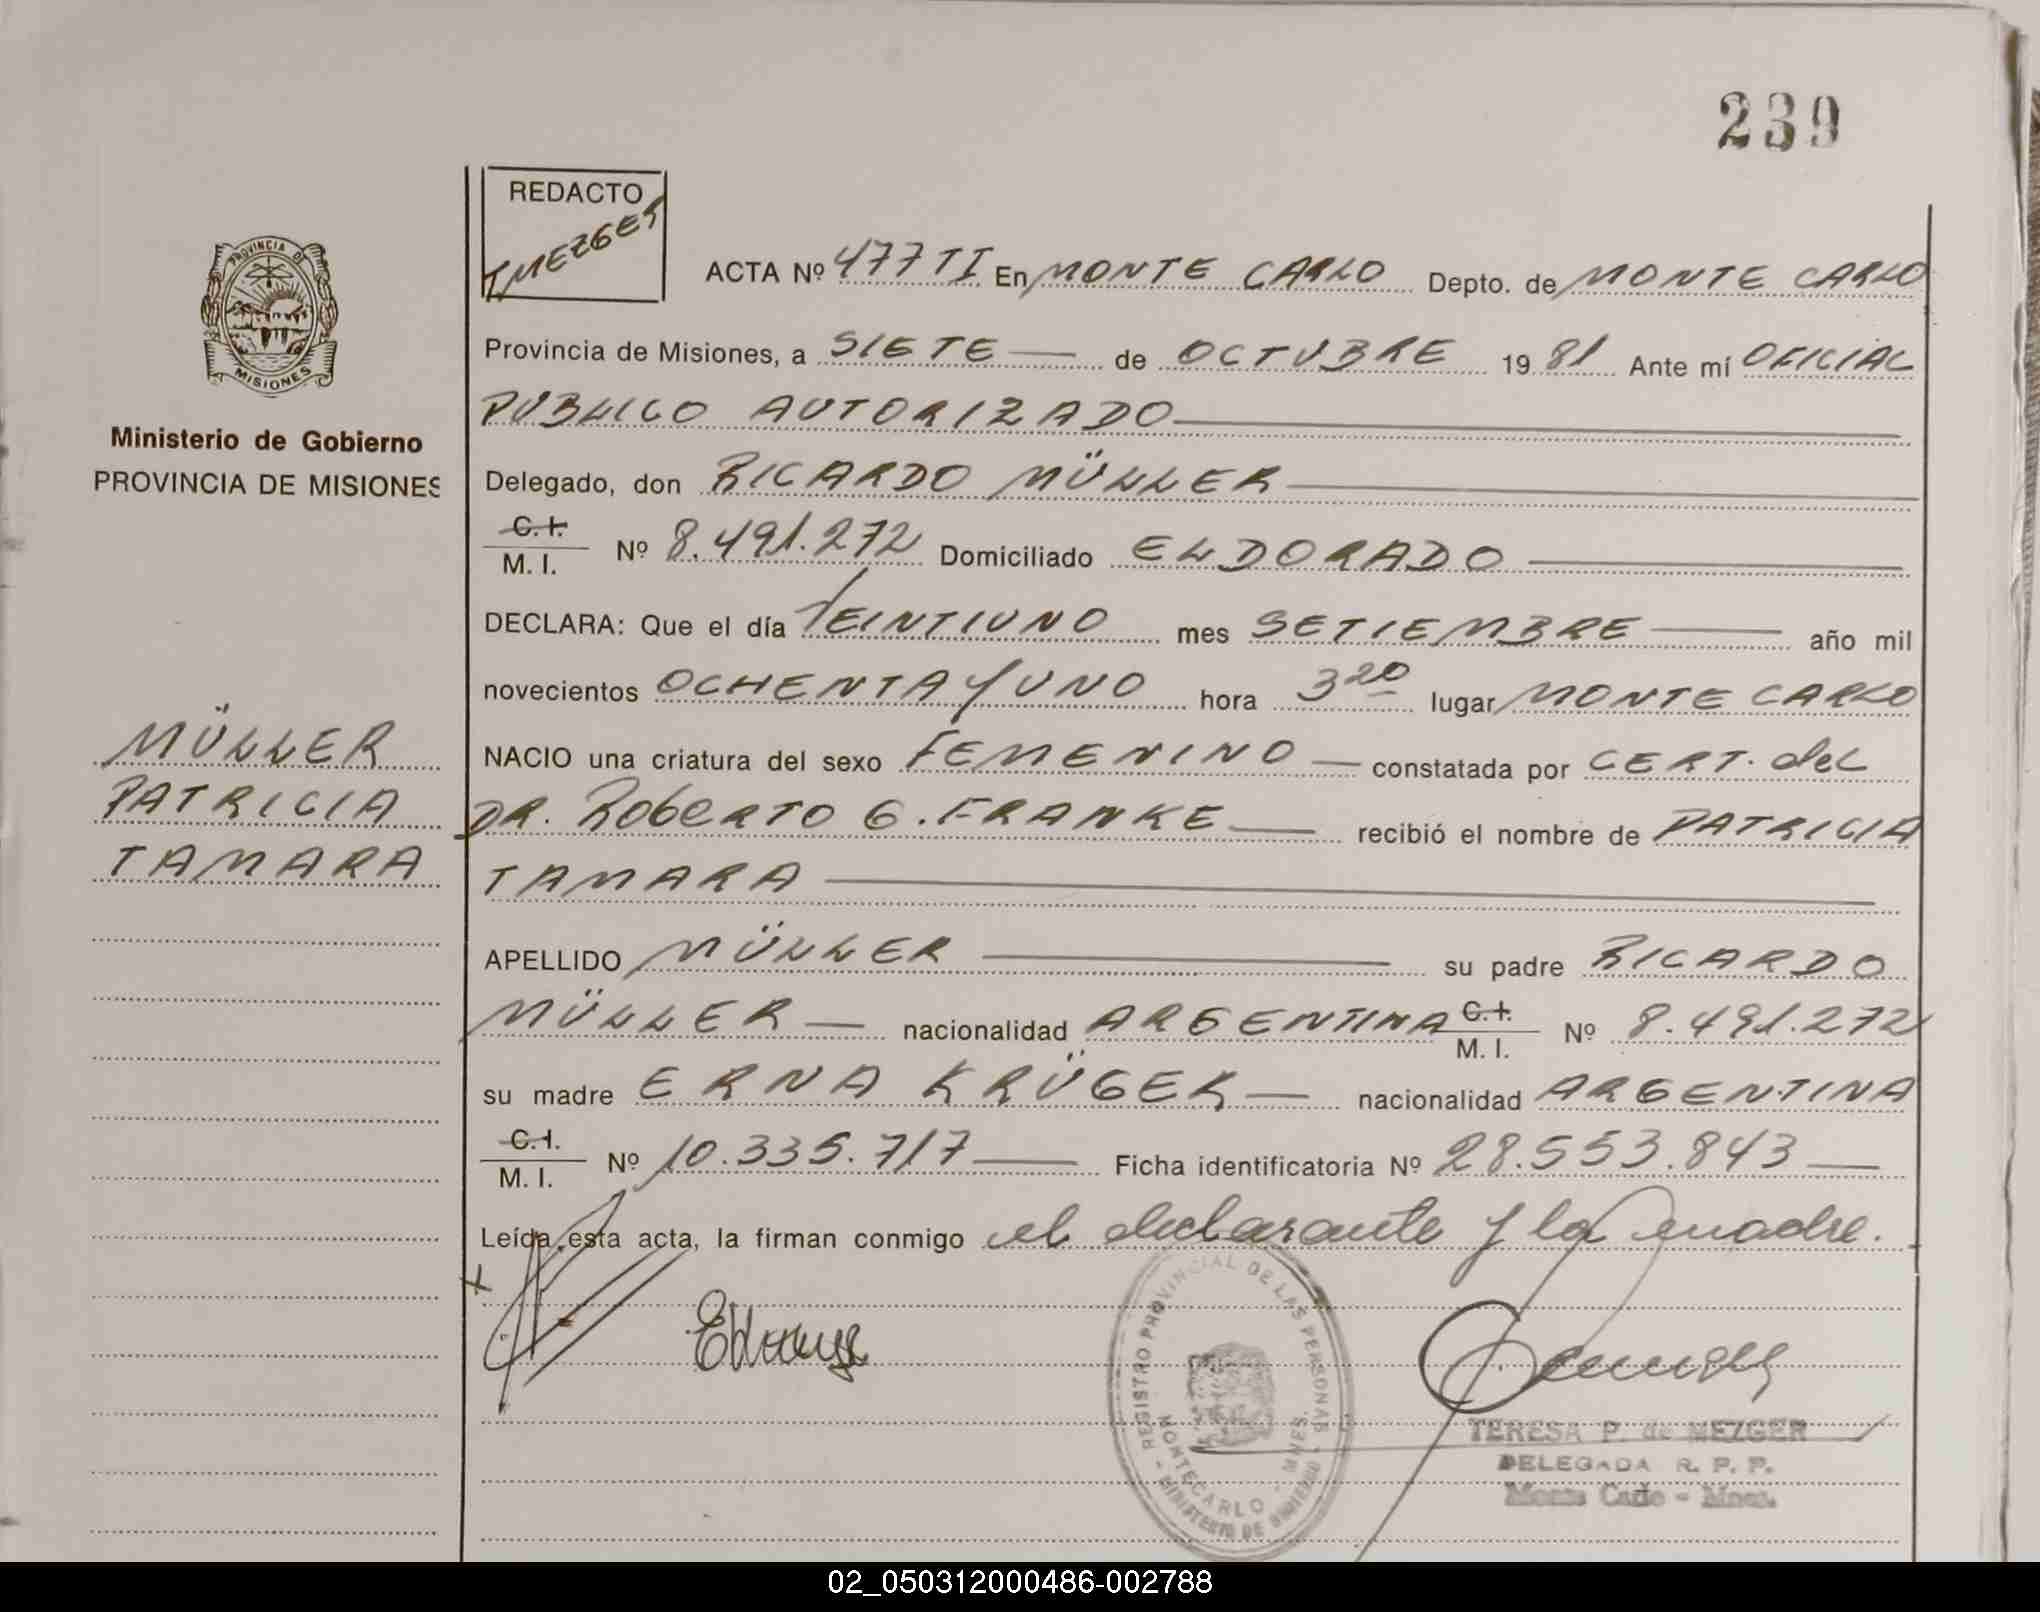 239
REDACTO
T MEZGER
PROVINCIA DE
MISIONES
Ministerio de Gobierno
PROVINCIA DE MISIONES
MÜLLER
PATRICIA
TAMARA
ACTA Nº 477 TI En MONTE CARLO Depto. de MONTE CARLO
Provincia de Misiones, a SIETE de OCTUBRE 1981 Ante mí OFICIAL
PUBLICO AUTORIZADO
Delegado, don RICARDO MÜLLER
C.I.
M. I. Nº 8.491.272 Domiciliado ELDORADO
DECLARA: Que el día VEINTIUNO mes SETIEMBRE año mil
novecientos OCHENTA Y UNO hora 3 20 lugar MONTE CARLO
NACIO una criatura del sexo FEMENINO constatada por CERT. del
DR. Roberto G. FRANKE recibió el nombre de PATRICIA
TAMARA
APELLIDO MÜLLER su padre RICARDO
MÜLLER nacionalidad ARGENTINA C.I.
M. I. Nº 8.491.272
su madre ERNA KRÜGER nacionalidad ARGENTINA
C.I.
M. I. Nº 10.335.717 Ficha identificatoria Nº 28.553.843
Leída esta acta, la firman conmigo el declarante y la madre.
REGISTRO PROVINCIAL DE LAS PERSONAS
MONTECARLO - MNES.
MINISTERIO DE GOBIERNO
TERESA P. de MEZGER
DELEGADA R. P. P.
Monte Carlo - Mnes.
02_050312000486-002788